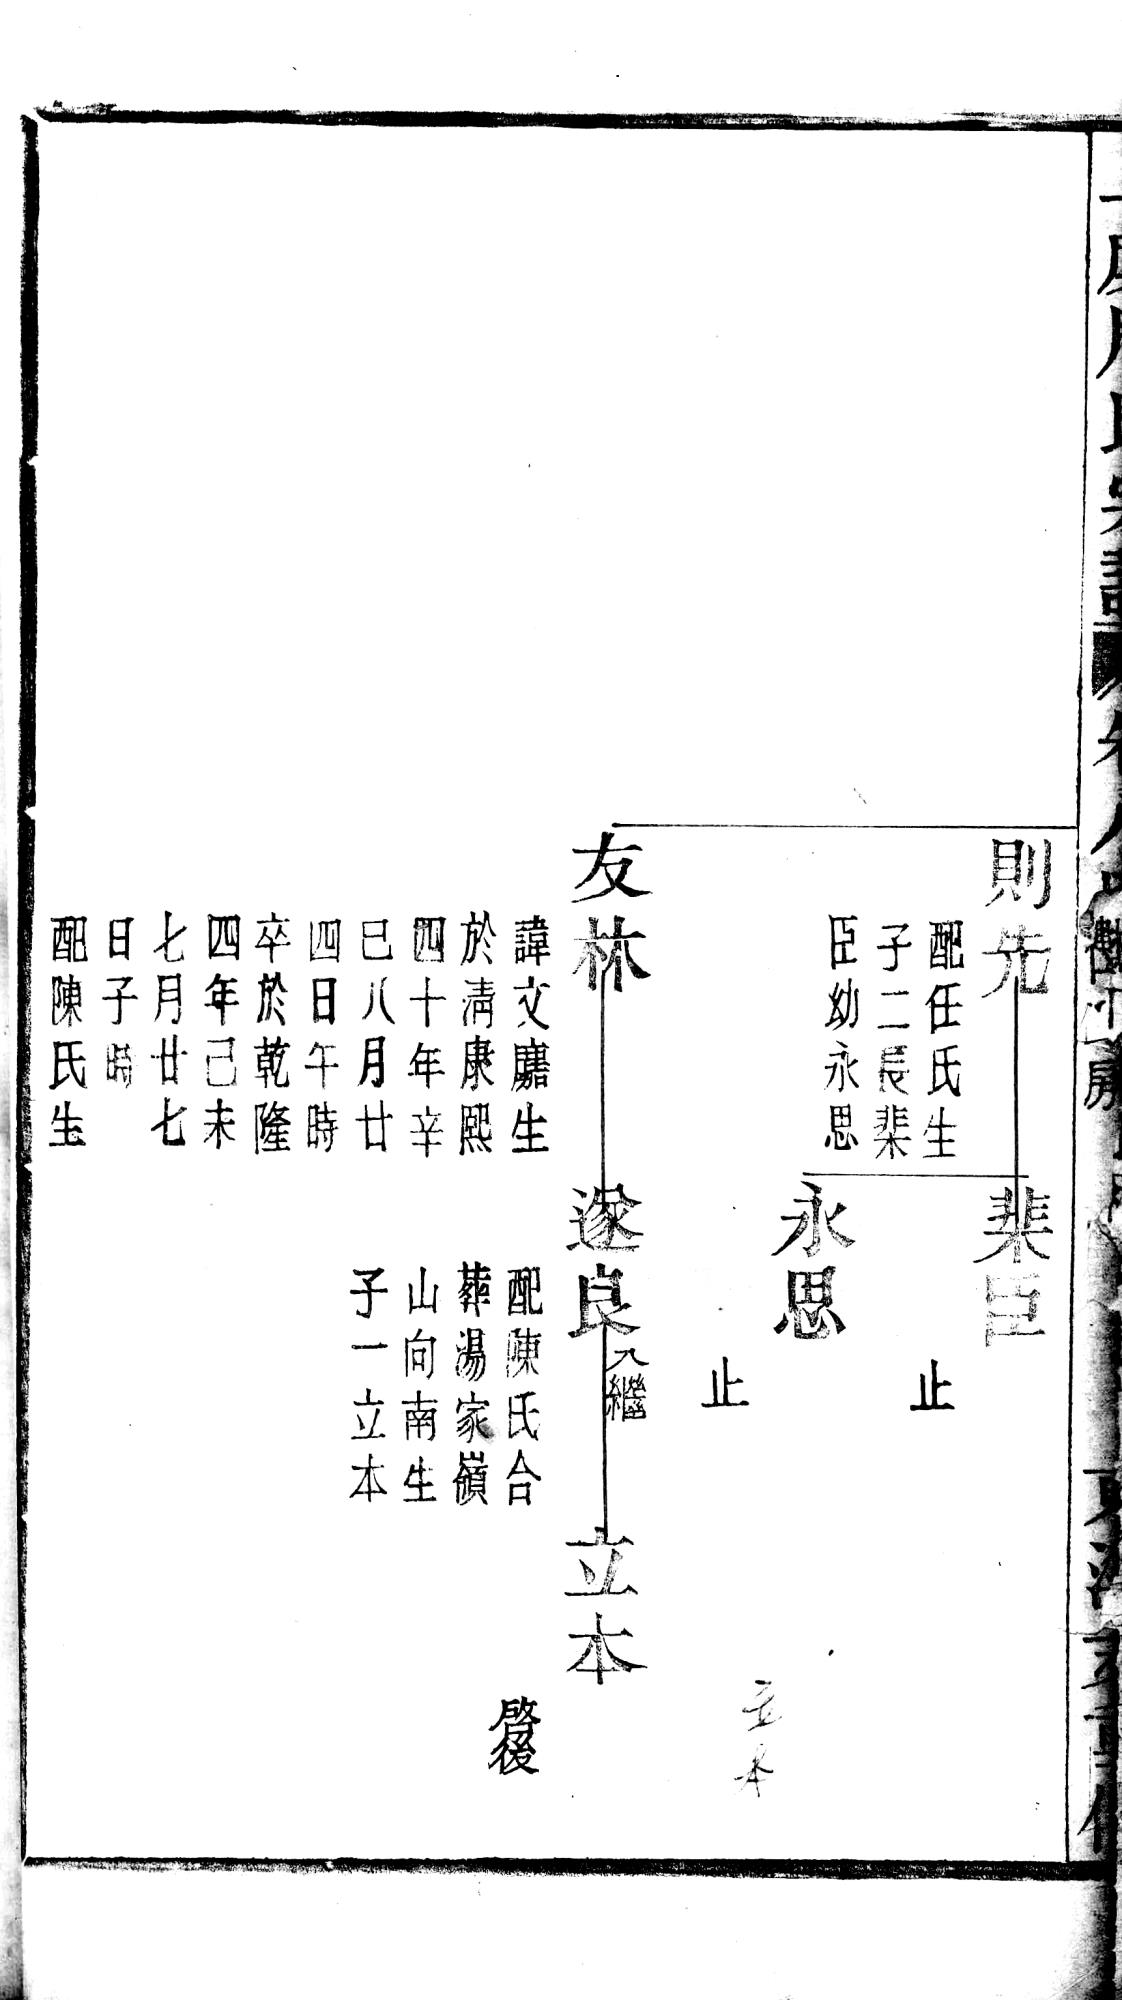 則先
配任氏生
子二長棐
臣幼永思
棐臣
止
永思
止
友林
諱文𪋤生
於清康熙
四十年辛
巳八月廿
四日午時
卒於乾隆
四年己未
七月廿七
日子時
配陳氏生
遂良
入繼
配陳氏合
葬湯家嶺
山向南生
子一立本
立本
啓後
立本